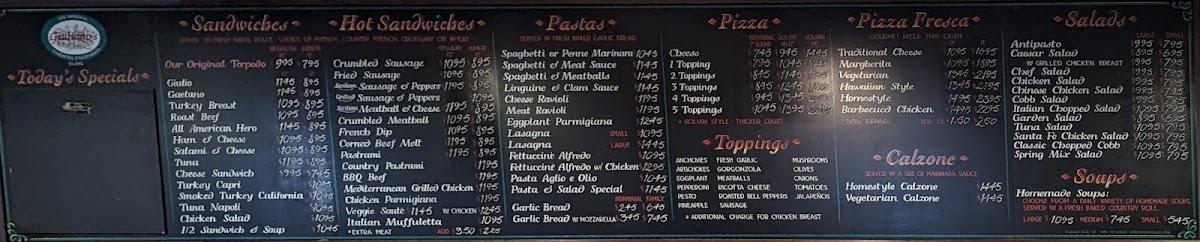 THE ORIGINAL
Giuliano's
Today's Specials
Sandwiches
SERVED ON FRESH BAKED ROLLS. CHOICE OF FRENCH, COUNTRY FRENCH, CROISSANT OR WHEAT
REGULAR JUNIOR
Our Original Torpedo $9.95 7.95
Giulio 11.45 8.95
Gaetano 11.45 8.95
Turkey Breast 10.95 8.95
Roast Beef 10.95 8.95
All American Hero $11.45 8.95
Ham & Cheese $10.95 8.95
Salami & Cheese $10.95 8.95
Tuna $11.95 8.95
Cheese Sandwich $9.95 $7.45
Turkey Capri $10.95
Smoked Turkey California $10.95
Tuna Napoli $10.95
Chicken Salad $10.95
1/2 Sandwich & Soup $10.45
Hot Sandwiches
REGULAR JUNIOR
Crumbled Sausage 10.95 $8.95
Fried Sausage 10.95 $8.95
Sausage & Peppers 11.95 $8.95
Grilled Sausage & Peppers 10.95
Meatball & Cheese 11.95 $8.95
Crumbled Meatball 10.95 $8.95
French Dip $10.95 $8.95
Corned Beef Melt $11.95 $8.95
Pastrami $11.95 $8.95
Country Pastrami $11.95
BBQ Beef $11.95
Mediterranean Grilled Chicken $11.95
Chicken Parmigiana $11.95
Veggie Sauté $11.45 W/ CHICKEN $12.45
Italian Muffuletta $10.95
*EXTRA MEAT ADD $3.50 2.25
Pastas
SERVED W/ FRESH BAKED GARLIC BREAD
Spaghetti or Penne Marinara $10.45
Spaghetti & Meat Sauce $11.45
Spaghetti & Meatballs $12.45
Linguine & Clam Sauce $11.45
Cheese Ravioli $11.95
Meat Ravioli $11.95
Eggplant Parmigiana $12.45
Lasagna SMALL $10.95
Lasagna LARGE $14.45
Fettuccine Alfredo $10.95
Fettuccine Alfredo w/ Chicken $12.95
Pasta Aglio e Olio $10.45
Pasta & Salad Special $11.45
INDIVIDUAL FAMILY
Garlic Bread $2.45 $6.45
Garlic Bread W/ MOZZARELLA $3.45 $7.45
Pizza
Cheese
1 Topping
2 Toppings
3 Toppings
4 Toppings
5 Toppings
* SICILIAN STYLE - THICKER CRUST
Toppings
ANCHOVIES FRESH GARLIC MUSHROOMS
ARTICHOKES GORGONZOLA OLIVES
EGGPLANT MEATBALLS ONIONS
PEPPERONI RICOTTA CHEESE TOMATOES
PESTO ROASTED BELL PEPPERS JALAPEÑOS
PINEAPPLE SAUSAGE
* ADDITIONAL CHARGE FOR CHICKEN BREAST
Pizza Fresca
GOURMET PIZZA THIN CRUST
Traditional Cheese $10.95 $16.95
Margherita
Vegetarian
Hawaiian Style
Homestyle
Barbecued Chicken
*EXTRA TOPPINGS
Calzone
SERVED W/ A SIDE OF MARINARA SAUCE
Homestyle Calzone $14.45
Vegetarian Calzone $14.45
Salads
LARGE SMALL
Antipasto $9.95 $7.95
Caesar Salad $8.95
W/ GRILLED CHICKEN BREAST $9.95 7.95
Chef Salad $9.95 7.95
Chicken Salad $9.95 7.95
Chinese Chicken Salad $10.95 7.95
Cobb Salad $10.95 7.95
Italian Chopped Salad $10.95
Garden Salad $8.95
Tuna Salad $10.95 7.95
Santa Fe Chicken Salad $10.95 7.95
Classic Chopped Cobb $10.95 7.95
Spring Mix Salad $10.95 7.95
Soups
Homemade Soups:
CHOOSE FROM A DAILY VARIETY OF HOMEMADE SOUPS
SERVED W/ A FRESH BAKED COUNTRY ROLL.
LARGE $10.95 MEDIUM $7.45 SMALL $5.45